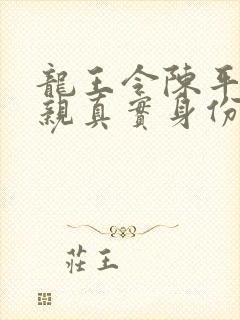 龍王令陳平
親真實身份
莊王